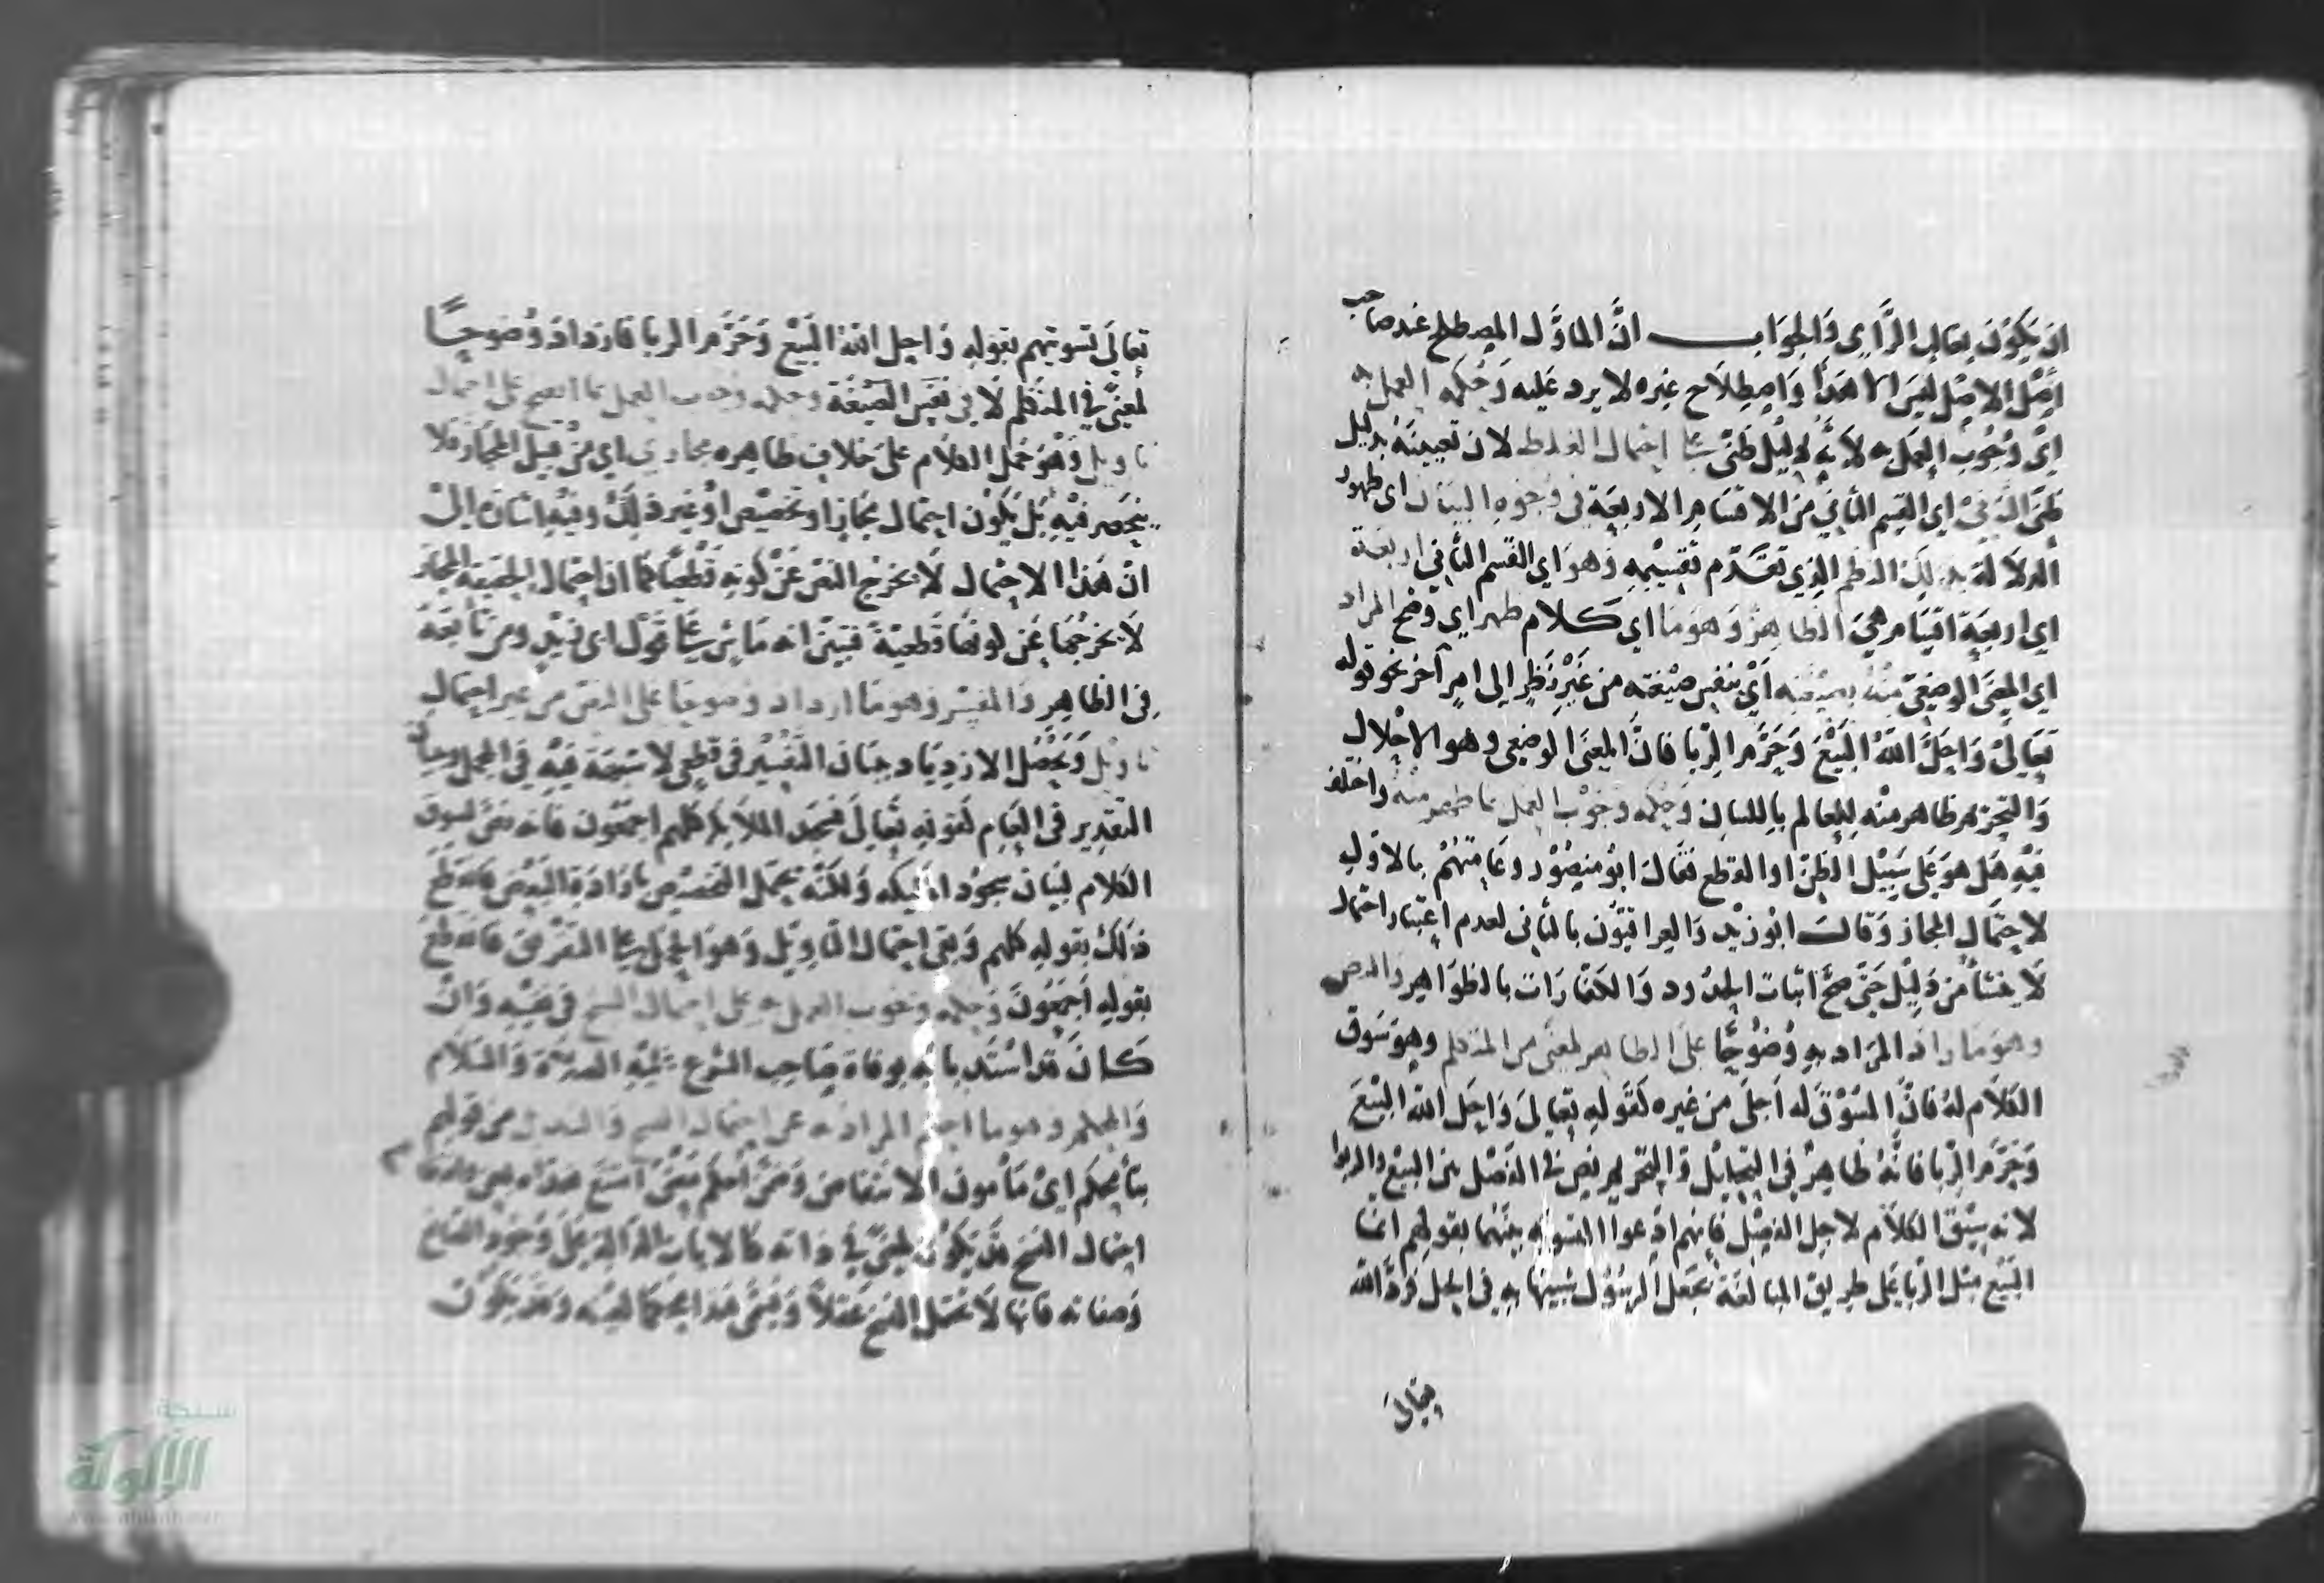 ان يكون بغالب الرأي والجواب ان المأول المصطلح عند صاحب
اصل الاصل ليس الا هذا واصطلاح غيره لا يرد عليه وحكمه العمل به
اي وجوب العمل به لانه دليل ظني على احتمال الغلط لان تعيينه بدليل
ظني الثاني اي القسم الثاني من الاقسام الاربعة في وجوه البيان اي ظهور
الدلالة بذلك النظم الذي تقدم تقسيمه وهو اي القسم الثاني اربعة
اي اربعة اقسام هي الظاهر وهو ما اي كلام ظهر اي وضح المراد
اي المعنى الوضعي منه بصيغته اي بنفس صيغته من غير نظر الى امر آخر نحو قوله
تعالى واحل الله البيع وحرم الربا فان المعنى الوضعي وهو الاحلال
والتحريم ظاهر منه للعالم باللسان وحكمه وجوب العمل بما ظهر منه واختلف
فيه هل هو على سبيل الظن او القطع فقال ابو منصور وعامتهم بالاول
لاحتمال المجاز وقالت ابو زيد والعراقيون بالثاني لعدم اعتبار احتمال
لا ينشأ من دليل حتى صح اثبات الحدود والكفارات بالظواهر والنص
وهو ما زاد المراد به وضوحا على الظاهر لمعنى من المتكلم وهو سوق
الكلام له فان المسوق له اجلى من غيره كقوله تعالى واحل الله البيع
وحرم الربا فانه ظاهر في التحليل والتحريم نص في الفصل بين البيع والربوا
لانه سيق الكلام لاجل الفصل فانهم ادعوا التسوية بينهما بقولهم انما
البيع مثل الربا على طريق المبالغة بجعل الربوا شبيها به في الحل فرد الله
تعالى
تعالى تسويتهم بقوله واحل الله البيع وحرم الربا فازداد وضوحا
لمعنى في المتكلم لا في نفس الصيغة وحكمه وجوب العمل بما اتضح على احتمال
تاويل وهو حمل الكلام على خلاف ظاهره مجازي اي من قبيل المجاز فلا
ينحصر فيه بل يكون احتمال مجاز او تخصيص او غير ذلك وفيه اشارة الى
ان هذا الاحتمال لا يخرج النص عن كونه قطعيا كما ان احتمال الحقيقة المجاز
لا يخرجها عن كونها قطعية فتبين انه ماش على قول ابي زيد ومن تابعه
في الظاهر والمفسر وهو ما ازداد وضوحا على النص من غير احتمال
تاويل ويحصل الازدياد ببيان التفسير في قطعي لا شبهة فيه في المجمل وببيان
التقدير في العام كقوله تعالى فسجد الملائكة كلهم اجمعون فانه نص لسوق
الكلام لبيان سجود الملائكة ولكنه يحتمل التخصيص بارادة البعض فانقطع
ذلك بقوله كلهم وبقي احتمال التاويل وهو الحمل على التفرق فانقطع
بقوله اجمعون وحكمه وجوب العمل به على احتمال النسخ في نفسه وان
كان قد استد بابه بوفاة صاحب الشرع عليه الصلاة والسلام
والمحكم وهو ما احكم المراد به عن احتمال النسخ والتبديل من قولهم
بناء محكم اي مأمون الانتقاض وضمن احكم معنى امتنع
احتمال النسخ قد يكون لمعنى في ذاته كالايات الدالة على وجود الصانع
وصفاته فانها لا تحتمل النسخ عقلا ويسمى هذا محكما لعينه وقد يكون
شبكة
الألوكة